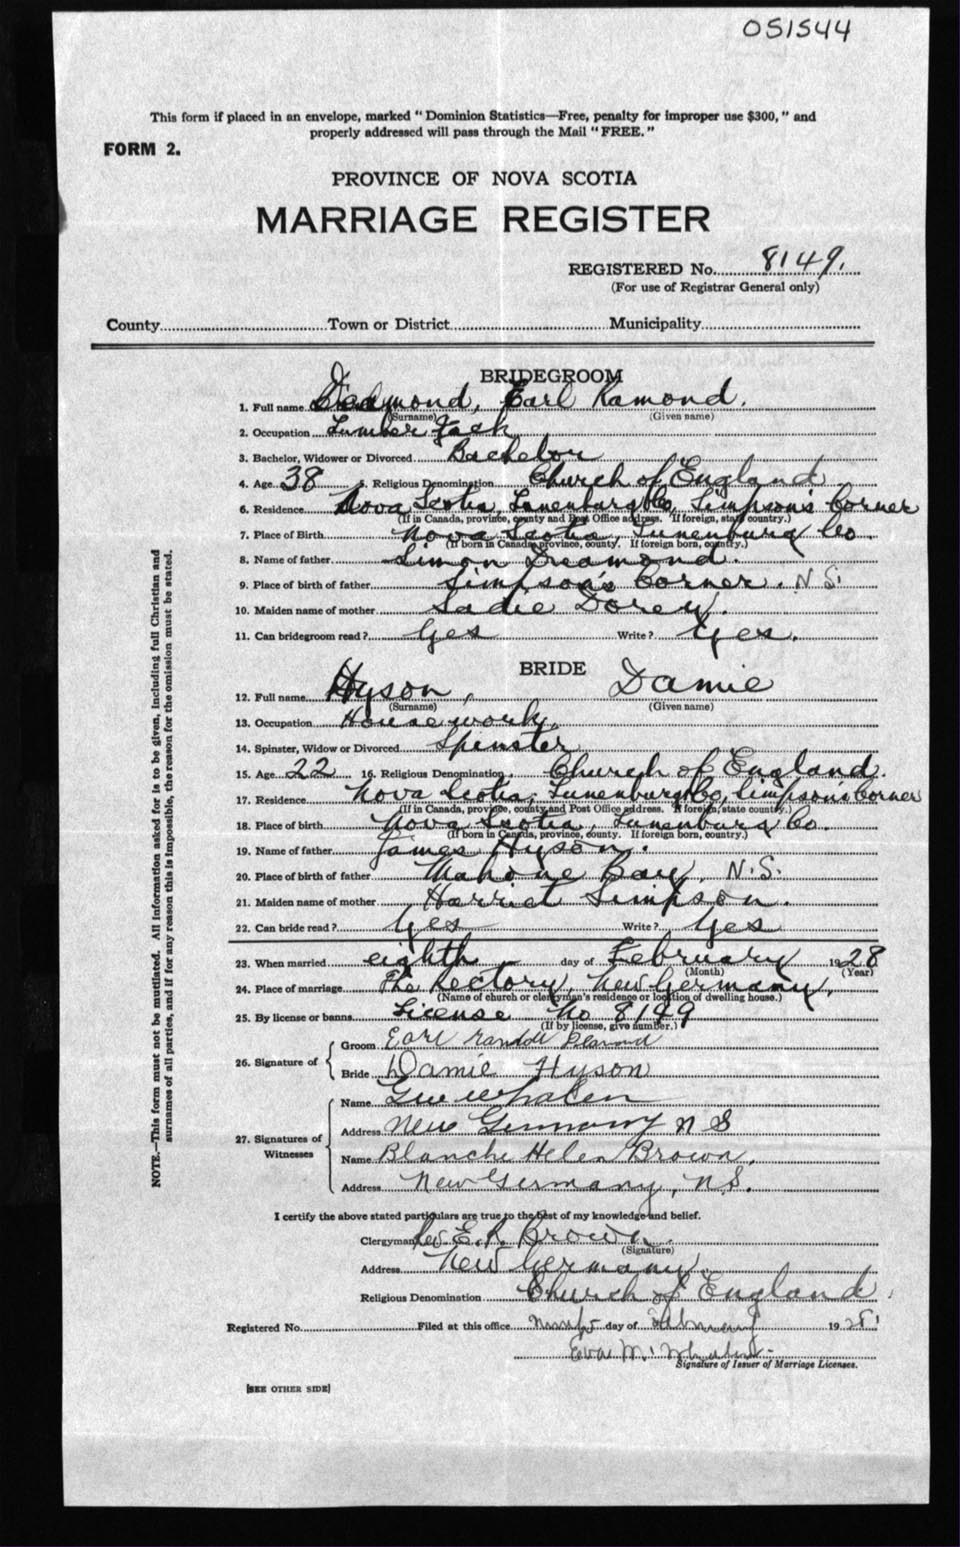 051544
This form if placed in an envelope, marked "Dominion Statistics—Free, penalty for improper use $300," and
properly addressed will pass through the Mail "FREE."
FORM 2.
PROVINCE OF NOVA SCOTIA
MARRIAGE REGISTER
REGISTERED No. 8149.
(For use of Registrar General only)
County Town or District Municipality
BRIDEGROOM
1. Full name Earl Ramond.
(Surname) (Given name)
2. Occupation Lumber Jack
3. Bachelor, Widower or Divorced Bachelor
4. Age 38 5. Religious Denomination Church of England
6. Residence Nova Scotia, Lunenburg Co, Simpson's Corner
(If in Canada, province, county and Post Office address. If foreign, state country.)
7. Place of Birth Nova Scotia, Lunenburg Co.
(If born in Canada, province, county. If foreign born, country.)
8. Name of father Simon Deamond.
9. Place of birth of father Simpson's Corner. N.S.
10. Maiden name of mother Sadie Dorey.
11. Can bridegroom read? Yes Write? Yes.
BRIDE
12. Full name Hyson, Damie
(Surname) (Given name)
13. Occupation Housework.
14. Spinster, Widow or Divorced Spinster
15. Age 22 16. Religious Denomination Church of England.
17. Residence Nova Scotia, Lunenburg Co, Simpsons Corner
(If in Canada, province, county and Post Office address. If foreign, state country.)
18. Place of birth Nova Scotia, Lunenburg Co.
(If born in Canada, province, county. If foreign born, country.)
19. Name of father James Hyson.
20. Place of birth of father Mahone Bay, N.S.
21. Maiden name of mother Harriet Simpson.
22. Can bride read? Yes Write? Yes
23. When married eighth day of February 1928
(Month) (Year)
24. Place of marriage The Rectory, New Germany.
(Name of church or clergyman's residence or location of dwelling house.)
25. By license or banns License No 8149
(If by license, give number.)
26. Signature of
Groom Earl
Bride Damie Hyson
27. Signatures of Witnesses
Name Whalen
Address New Germany N S
Name Blanche Helen Brown,
Address New Germany, N.S.
I certify the above stated particulars are true to the best of my knowledge and belief.
Clergyman Rev E. R. Brown.
(Signature)
Address New Germany.
Religious Denomination Church of England.
Registered No. Filed at this office day of February 1928
Eva M.
Signature of Issuer of Marriage Licenses.
[SEE OTHER SIDE]
NOTE.—This form must not be mutilated. All information asked for is to be given, including full Christian and
surnames of all parties, and if for any reason this is impossible, the reason for the omission must be stated.